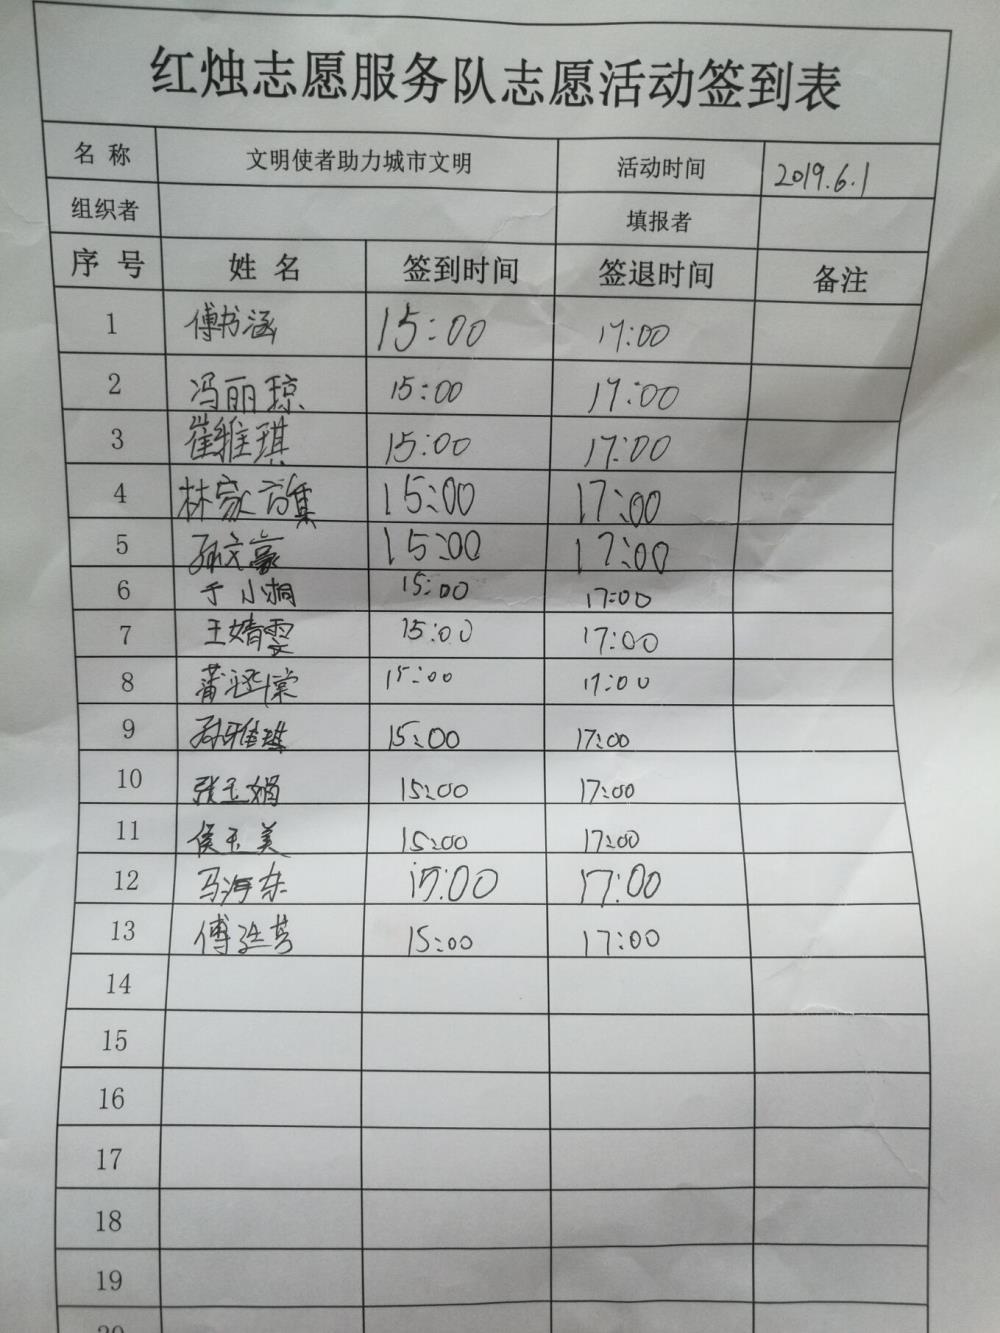 红烛志愿服务队志愿活动签到表
名 称 文明使者助力城市文明 活动时间 2019.6.1
组织者 填报者
序 号 姓 名 签到时间 签退时间 备注
1 傅书涵 15:00 17:00
2 冯丽琼 15:00 17:00
3 崔雅琪 15:00 17:00
4 林家 15:00 17:00
5 孙文豪 15:00 17:00
6 于小桐 15:00 17:00
7 王婧雯 15:00 17:00
8 15:00 17:00
9 孙雅 15:00 17:00
10 张玉娟 15:00 17:00
11 侯玉美 15:00 17:00
12 马海东 17:00
13 傅廷芳 15:00 17:00
14
15
16
17
18
19